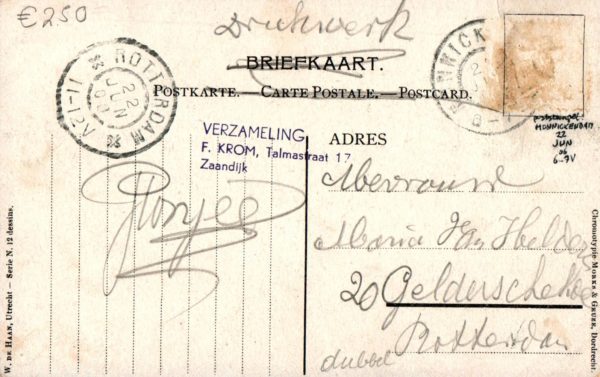 €250
Drukwerk
BRIEFKAART.
POSTKARTE.—CARTE POSTALE.—POSTCARD.
ROTTERDAM
11-12V
22
JUN
NNICK
poststempel
MONNICKENDAM
22
JUN
06
6-7V
VERZAMELING
F. KROM, Talmastraat 17
Zaandijk
ADRES
Mevrouw
Maria
20 Gelderschekade
Rotterdam
dubbel
W. DE HAAN, Utrecht — Serie N. 12 dessins.
Chromotypie MORKS & GEUZE, Dordrecht.